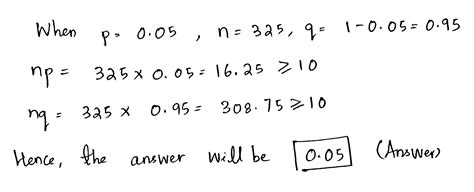 When p = 0.05 , n = 325, q = 1 - 0.05 = 0.95
np = 325 x 0.05 = 16.25 ⩾ 10
nq = 325 x 0.95 = 308.75 ⩾ 10
Hence, the answer will be 0.05 (Answer)